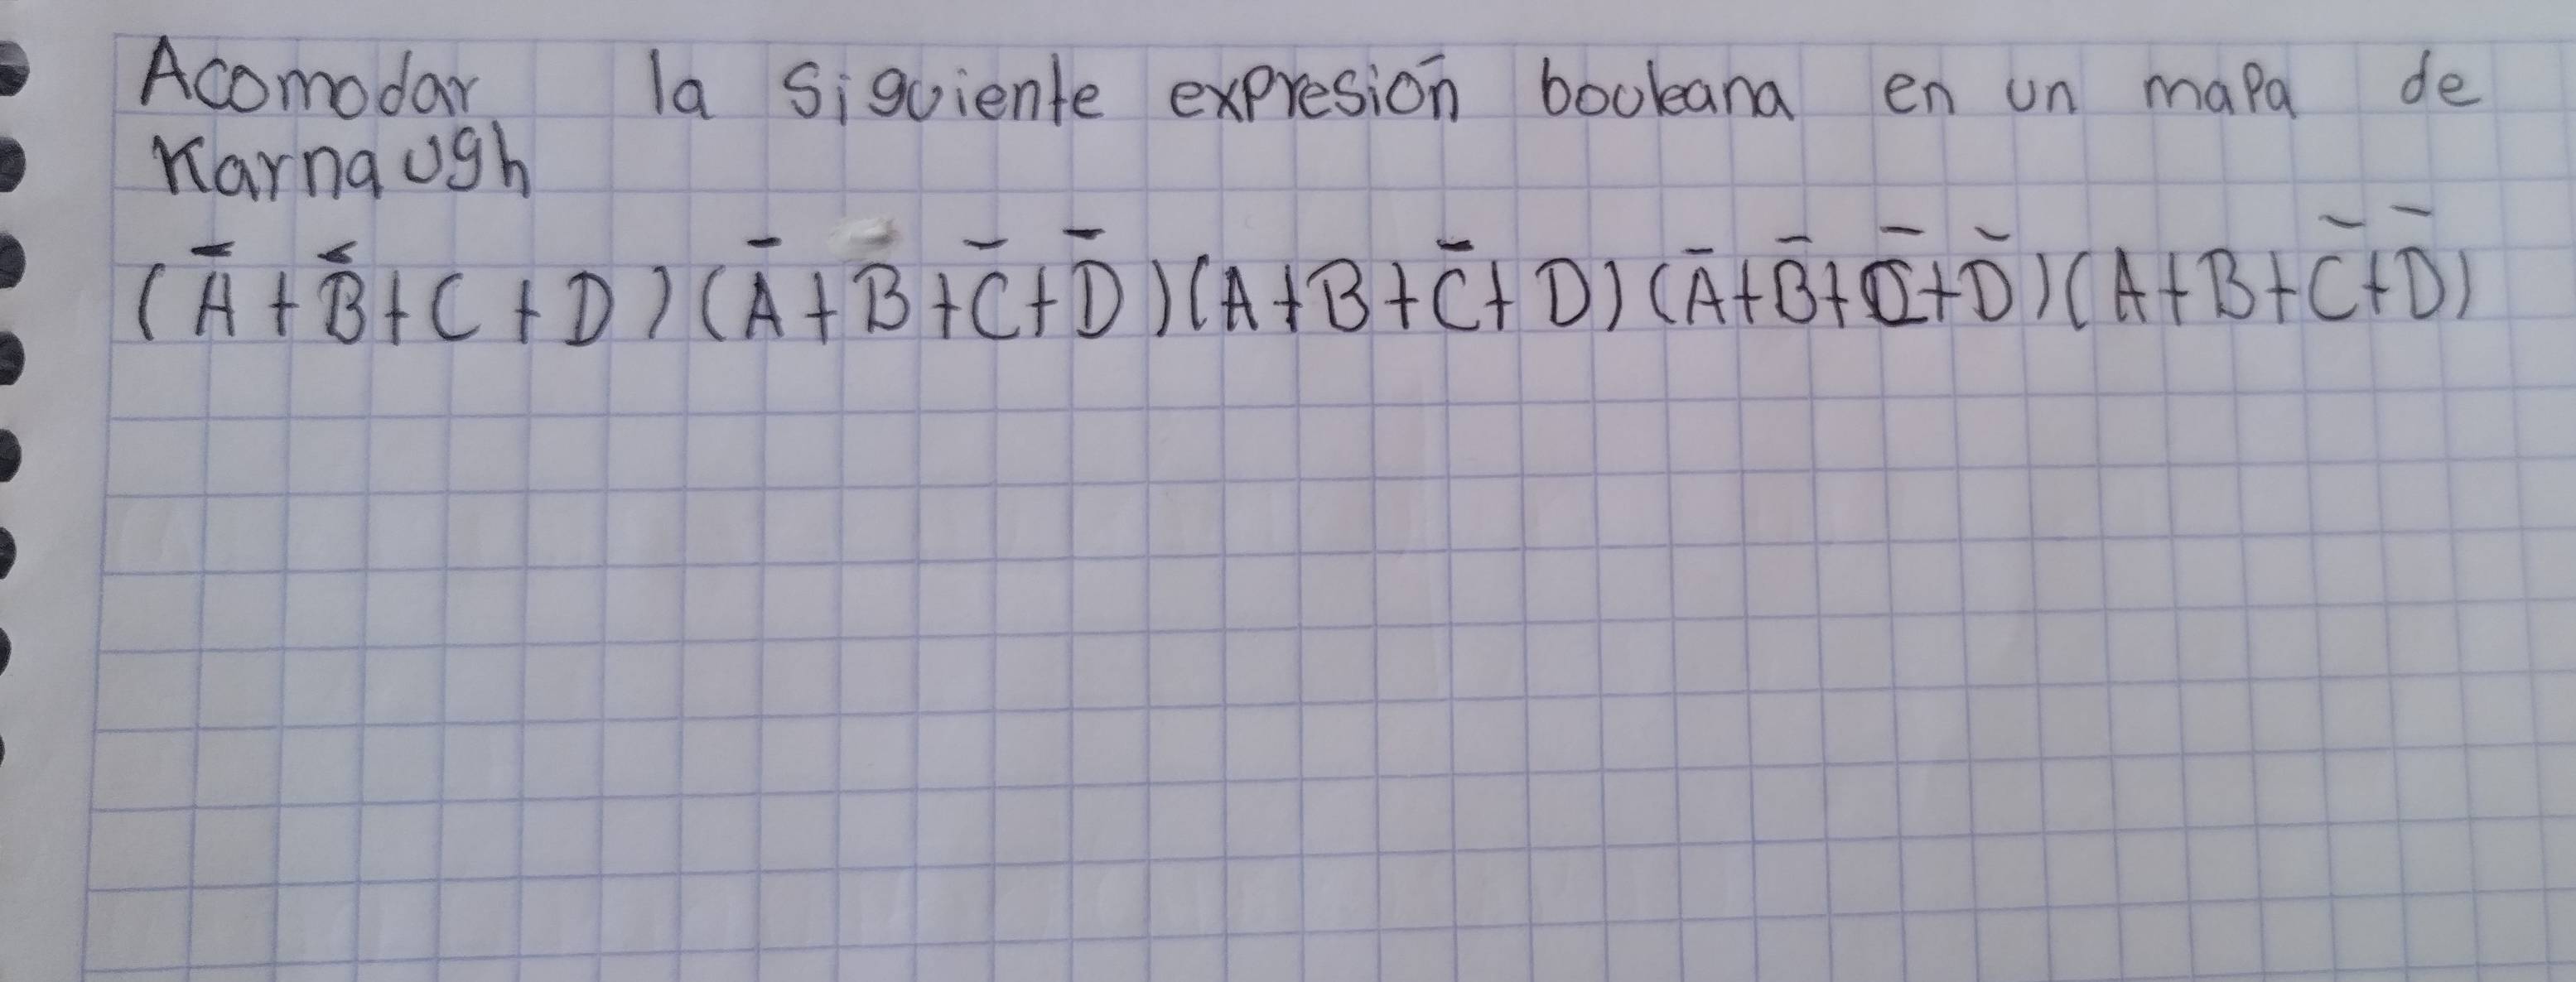 Acomodar la siguiente expresión booleana en un mapa de
Karnaugh
(A̅+B̅+C+D)(A̅+B+C̅+D̅)(A+B+C̅+D)(A̅+B̅+C̅+D̅)(A+B+C̅+D̅)